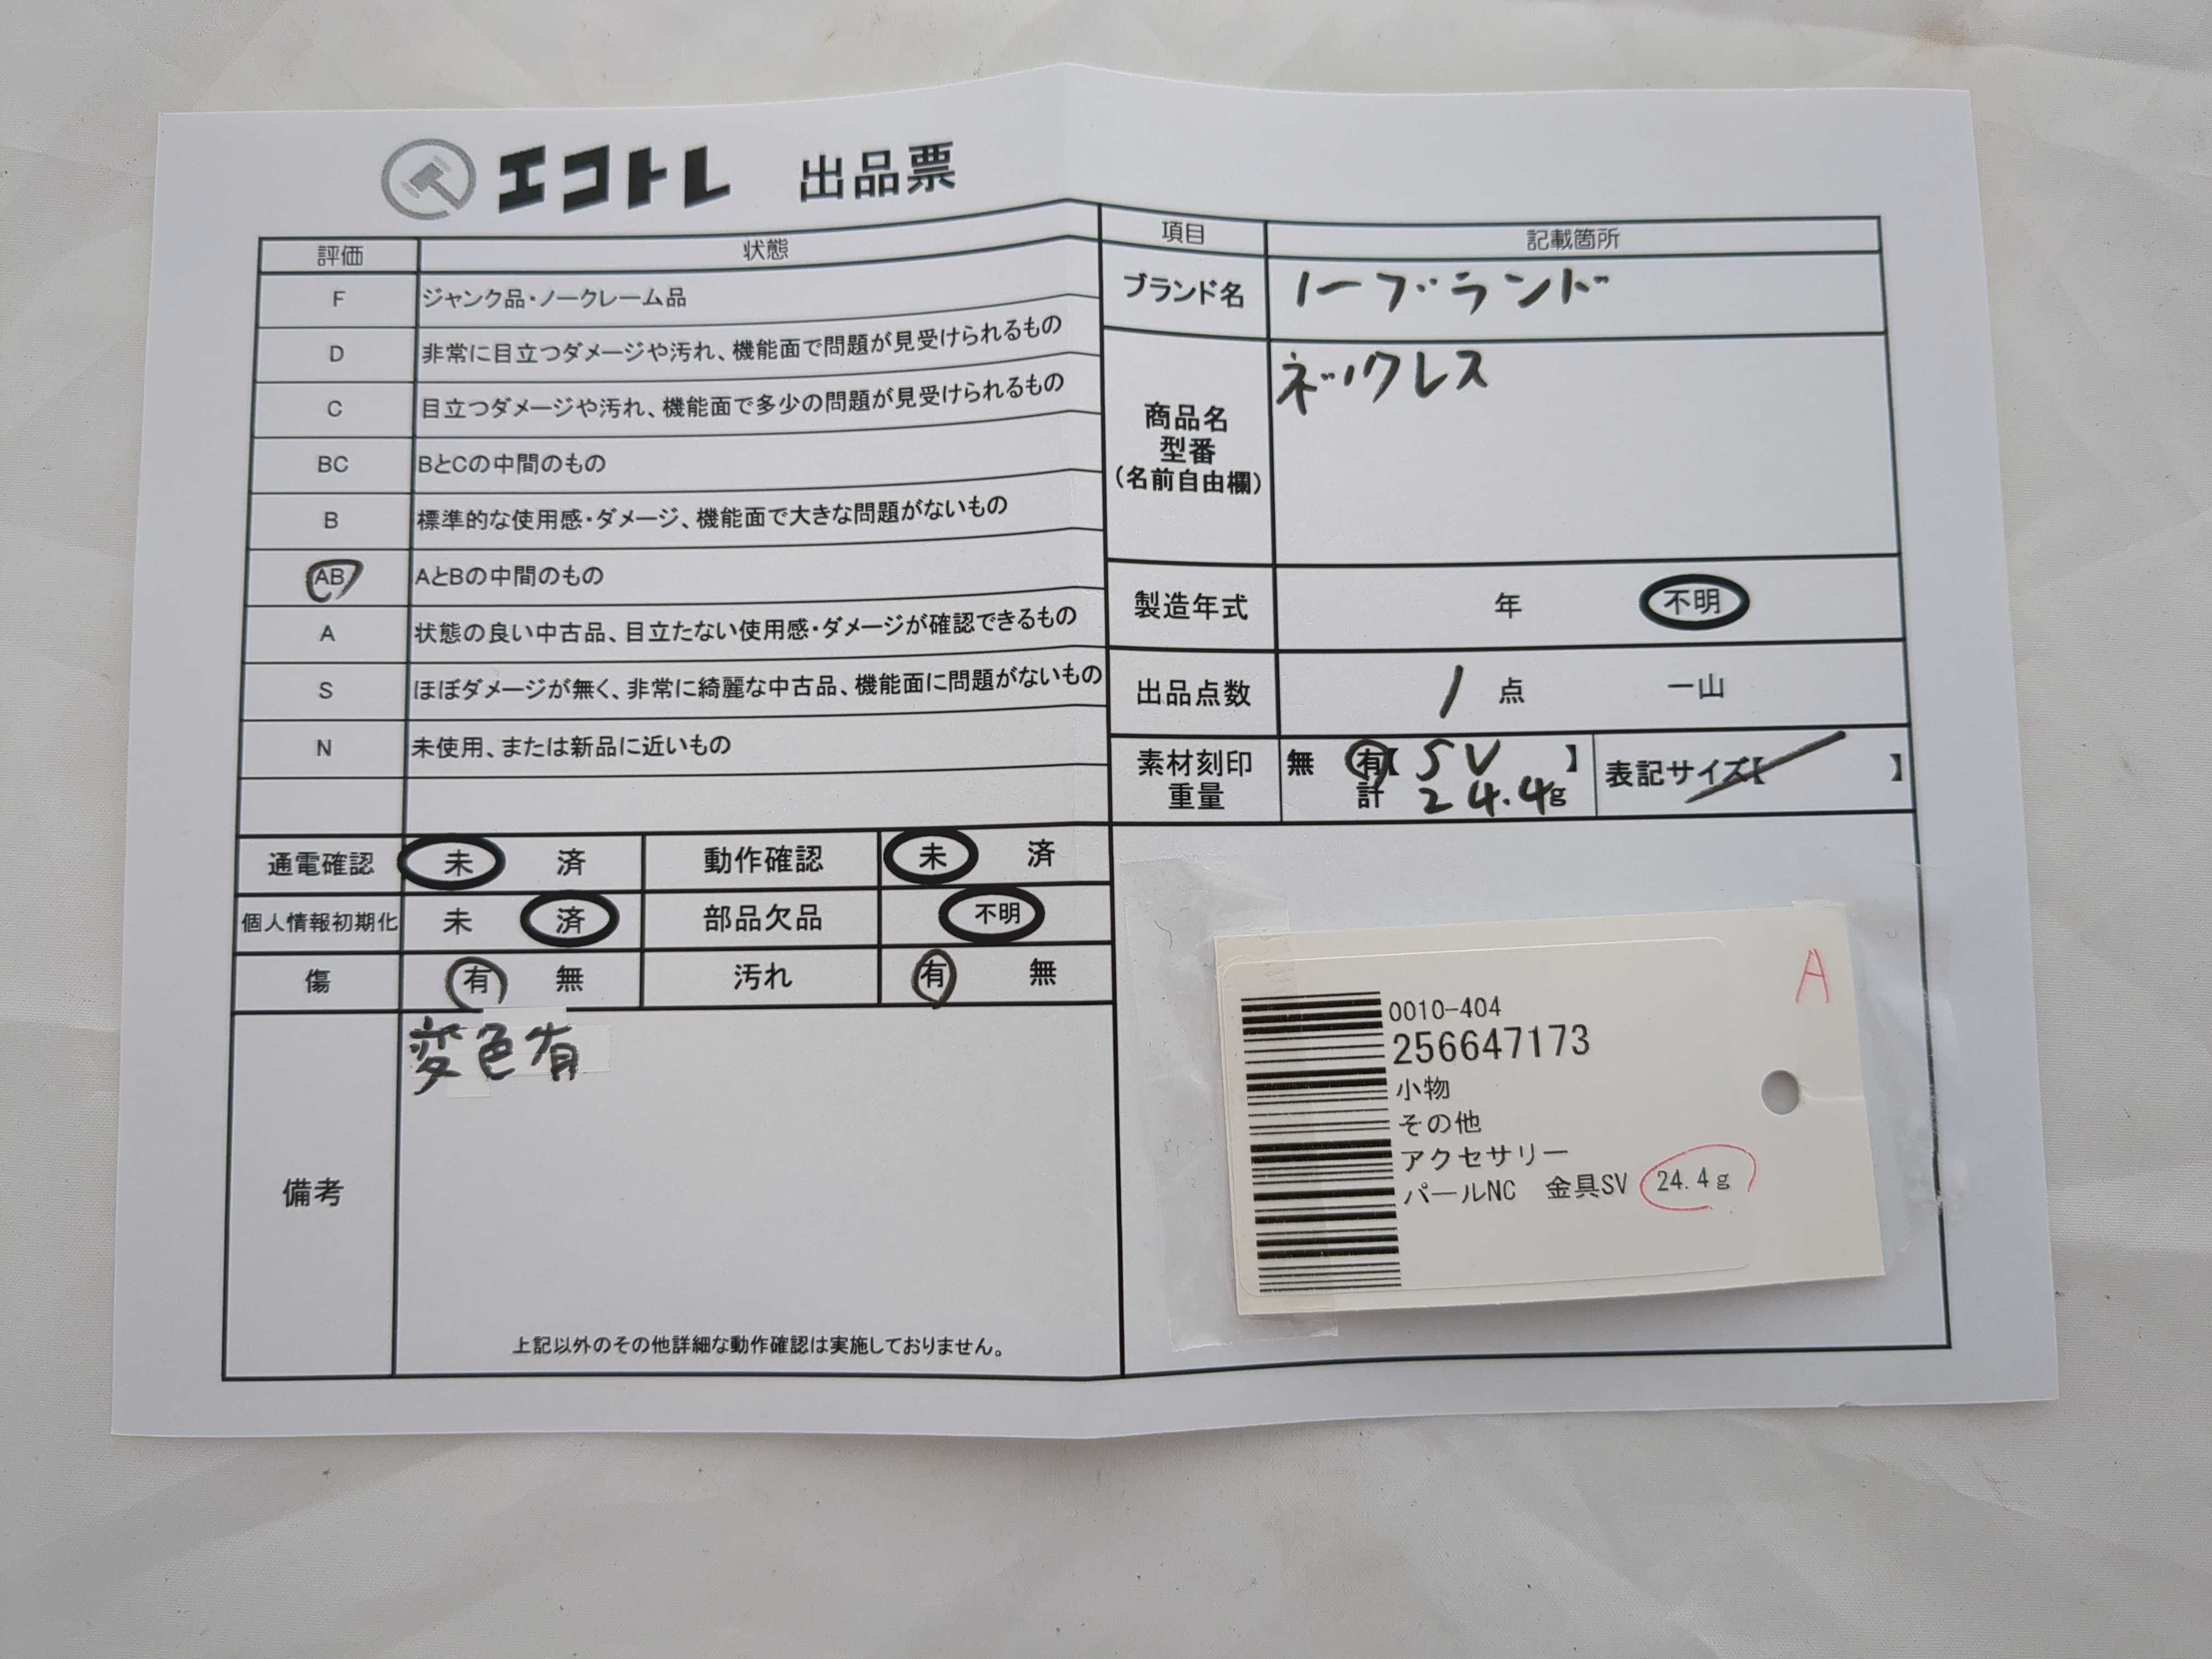 エコトレ 出品票
評価 状態
F ジャンク品・ノークレーム品
D 非常に目立つダメージや汚れ、機能面で問題が見受けられるもの
C 目立つダメージや汚れ、機能面で多少の問題が見受けられるもの
BC BとCの中間のもの
B 標準的な使用感・ダメージ、機能面で大きな問題がないもの
AB AとBの中間のもの
A 状態の良い中古品、目立たない使用感・ダメージが確認できるもの
S ほぼダメージが無く、非常に綺麗な中古品、機能面に問題がないもの
N 未使用、または新品に近いもの
通電確認 未 済 動作確認 未 済
個人情報初期化 未 済 部品欠品 不明
傷 有 無 汚れ 有 無
備考
変色有
上記以外のその他詳細な動作確認は実施しておりません。
項目 記載箇所
ブランド名 ノーブランド
商品名
型番
(名前自由欄)
ネックレス
製造年式 年 不明
出品点数 1 点 一山
素材刻印 無 有【 SV 】 表記サイズ【 】
重量 計 24.4g
A
0010-404
256647173
小物
その他
アクセサリー
パールNC 金具SV 24.4g